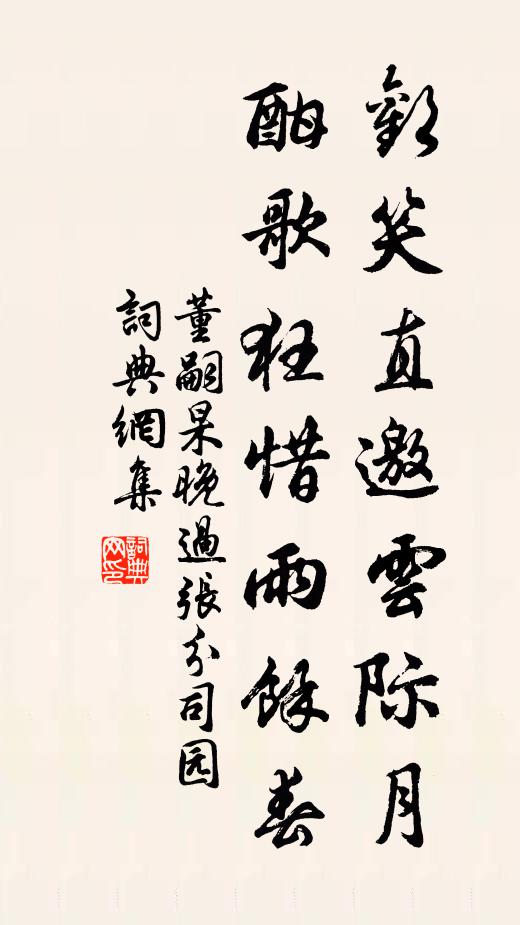 歡笑直邀雲际月
酣歌狂惜雨餘春
董嗣杲晚過張分司园
詞典網集
詞典
网印